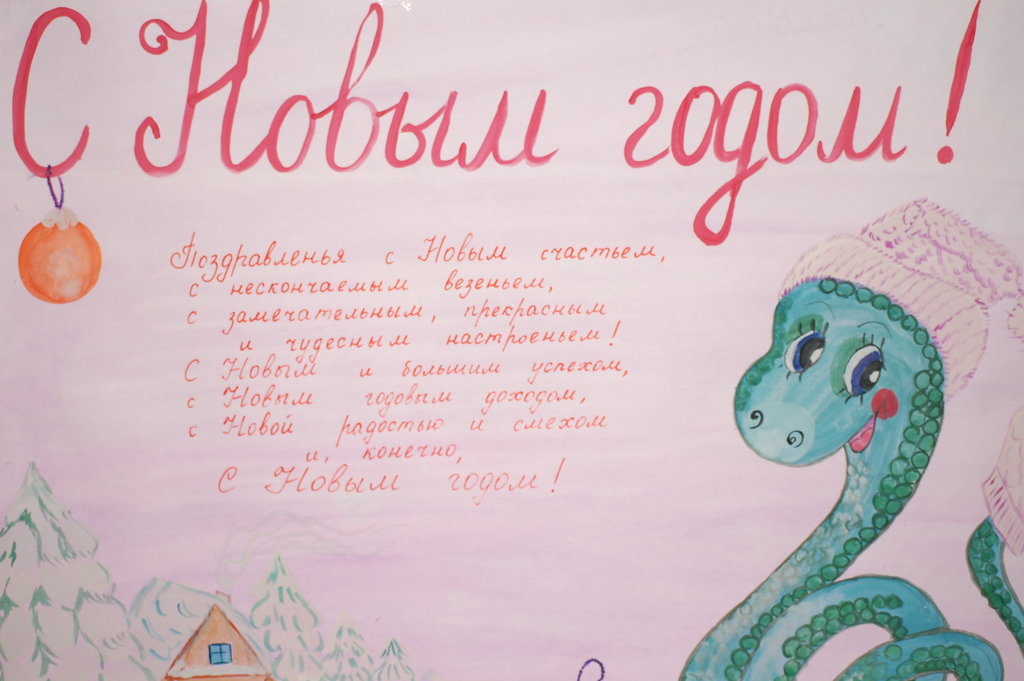 С Новым годом!
Поздравленья с Новым счастьем,
с нескончаемым везеньем,
с замечательным, прекрасным
и чудесным настроеньем!
С Новым и большим успехом,
с Новым годовым доходом,
с Новой радостью и смехом
и, конечно,
С Новым годом!